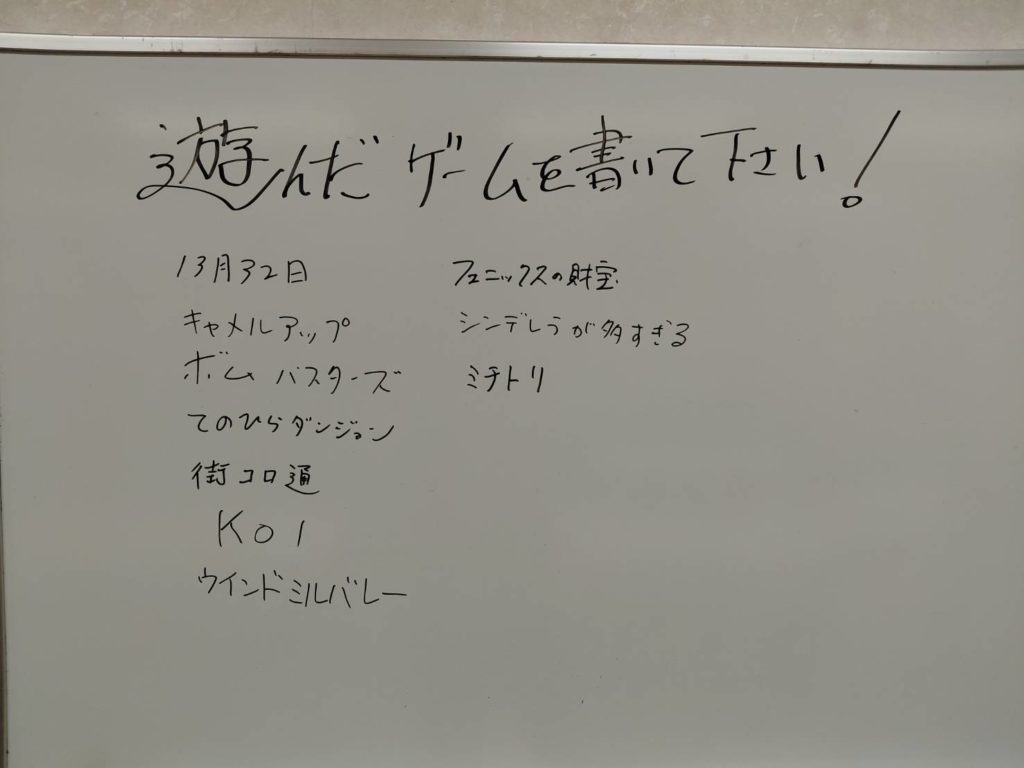 遊んだゲームを書いて下さい!
13月32日
キャメルアップ
ボムバスターズ
てのひらダンジョン
街コロ通
KOI
ウインドミルバレー
フェニックスの財宝
シンデレラが多すぎる
ミチトリ